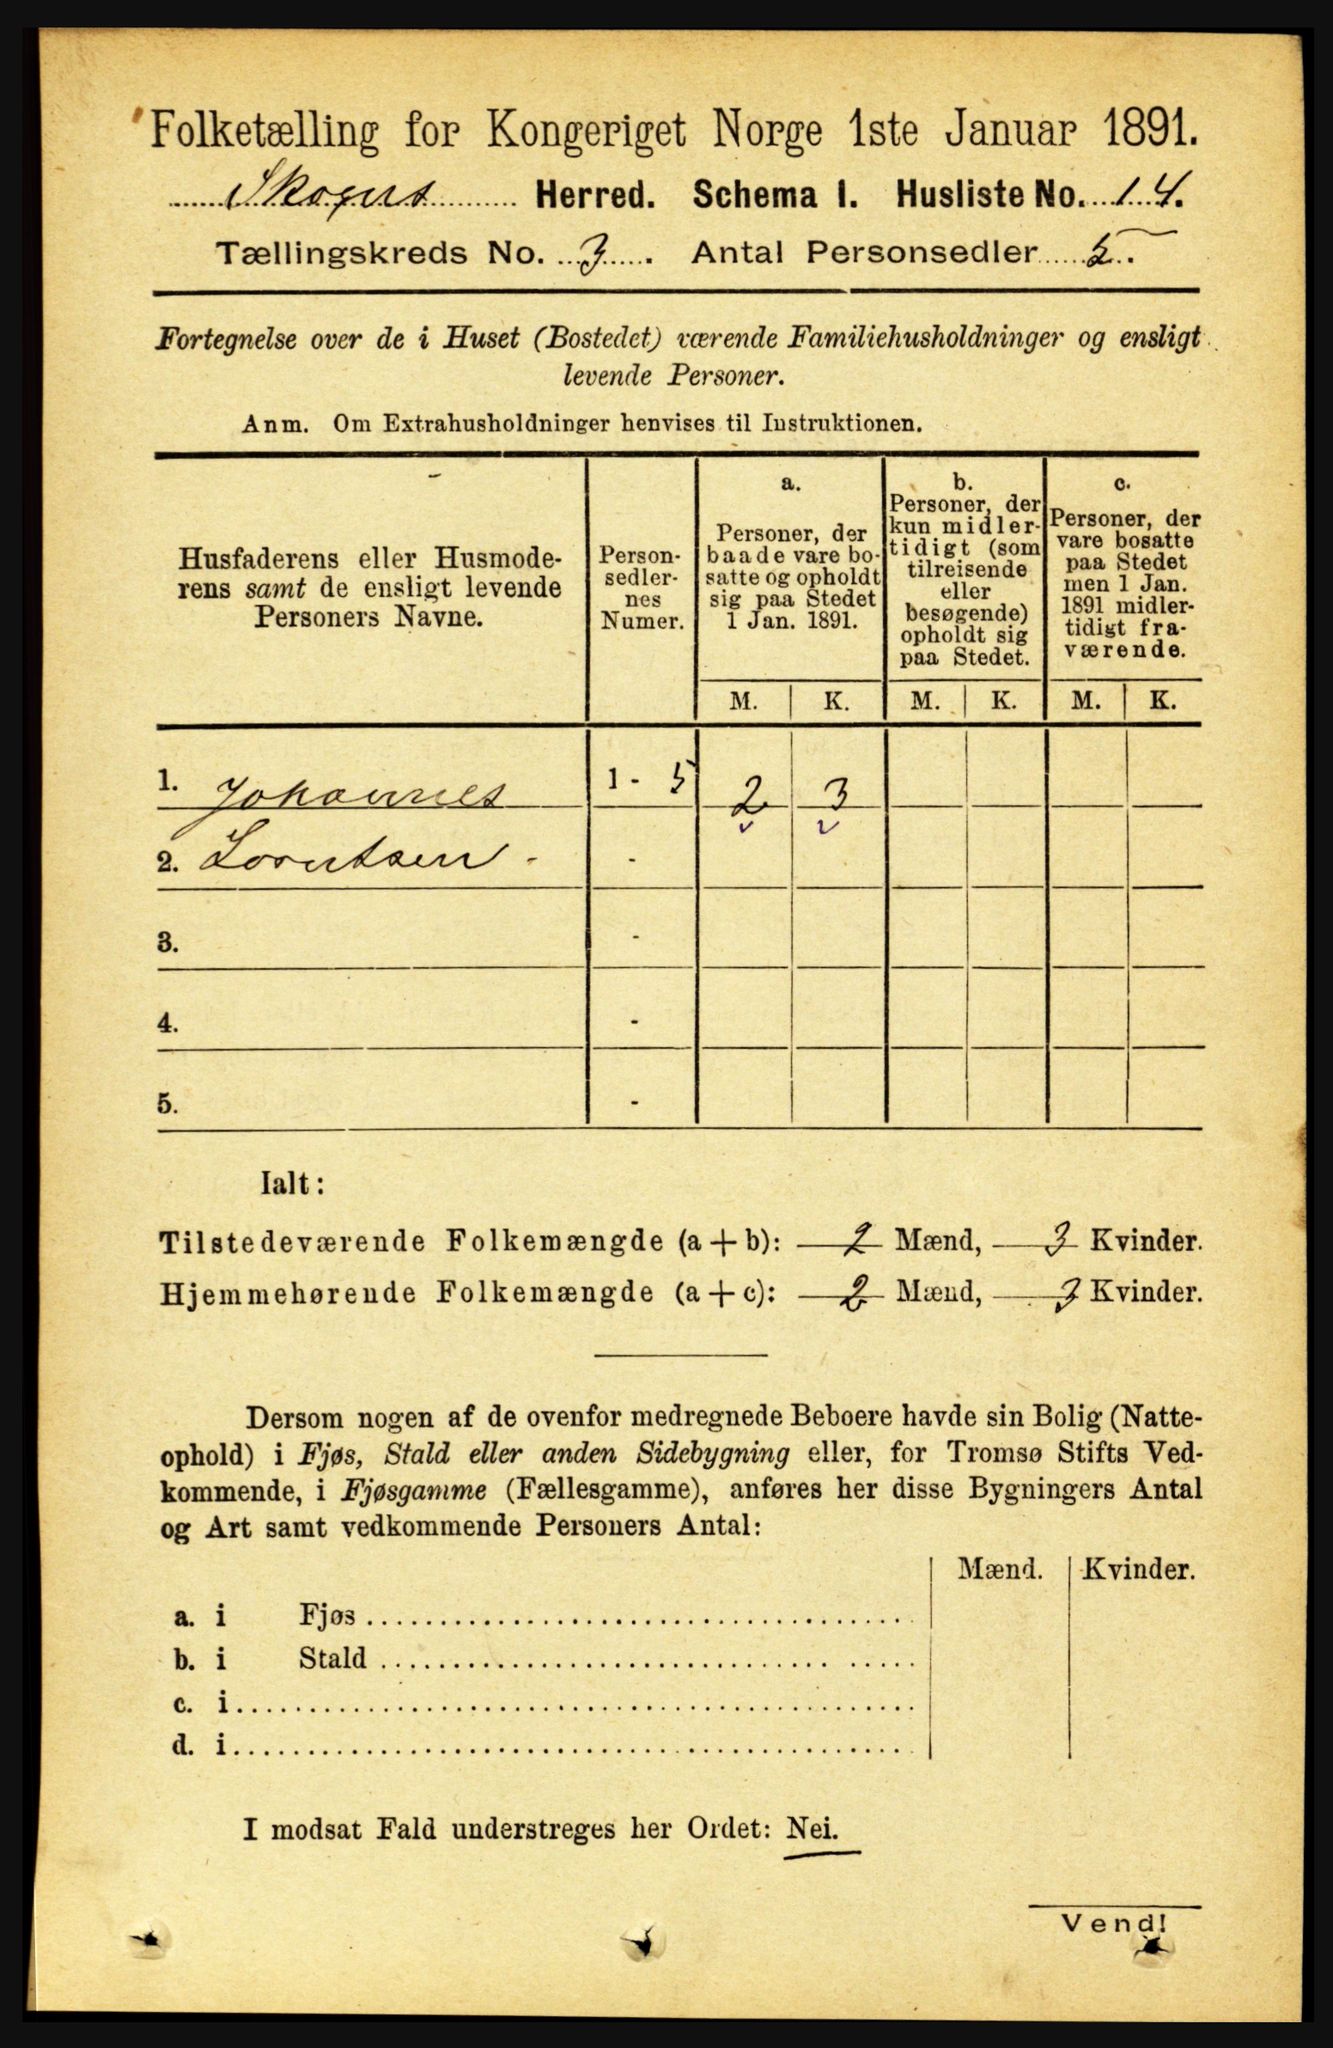 Folketælling for Kongeriget Norge 1ste Januar 1891.
Skogns Herred. Schema 1. Husliste No. 14.
Tællingskreds No. 3. Antal Personsedler 5.
Fortegnelse over de i Huset (Bostedet) værende Familiehusholdninger og ensligt
levende Personer.
Anm. Om Extrahusholdninger henvises til Instruktionen.
Husfaderens eller Husmode-
rens samt de ensligt levende
Personers Navne.
Person-
sedler-
nes
Numer.
a.
Personer, der
baade vare bo-
satte og opholdt
sig paa Stedet
1 Jan. 1891.
b.
Personer, der
kun midler-
tidigt (som
tilreisende
eller
besøgende)
opholdt sig
paa Stedet.
c.
Personer, der
vare bosatte
paa Stedet
men 1 Jan.
1891 midler-
tidigt fra-
værende.
M. K. M. K. M. K.
1. Johannes 1 - 5 2 3
2. Lorntsen - -
3. -
4. -
5. -
Ialt:
Tilstedeværende Folkemængde (a + b): 2 Mænd, 3 Kvinder.
Hjemmehørende Folkemængde (a + c): 2 Mænd, 3 Kvinder.
Dersom nogen af de ovenfor medregnede Beboere havde sin Bolig (Natte-
ophold) i Fjøs, Stald eller anden Sidebygning eller, for Tromsø Stifts Ved-
kommende, i Fjøsgamme (Fællesgamme), anføres her disse Bygningers Antal
og Art samt vedkommende Personers Antal:
Mænd. Kvinder.
a. i Fjøs
b. i Stald
c. i
d. i
I modsat Fald understreges her Ordet: Nei.
Vend!